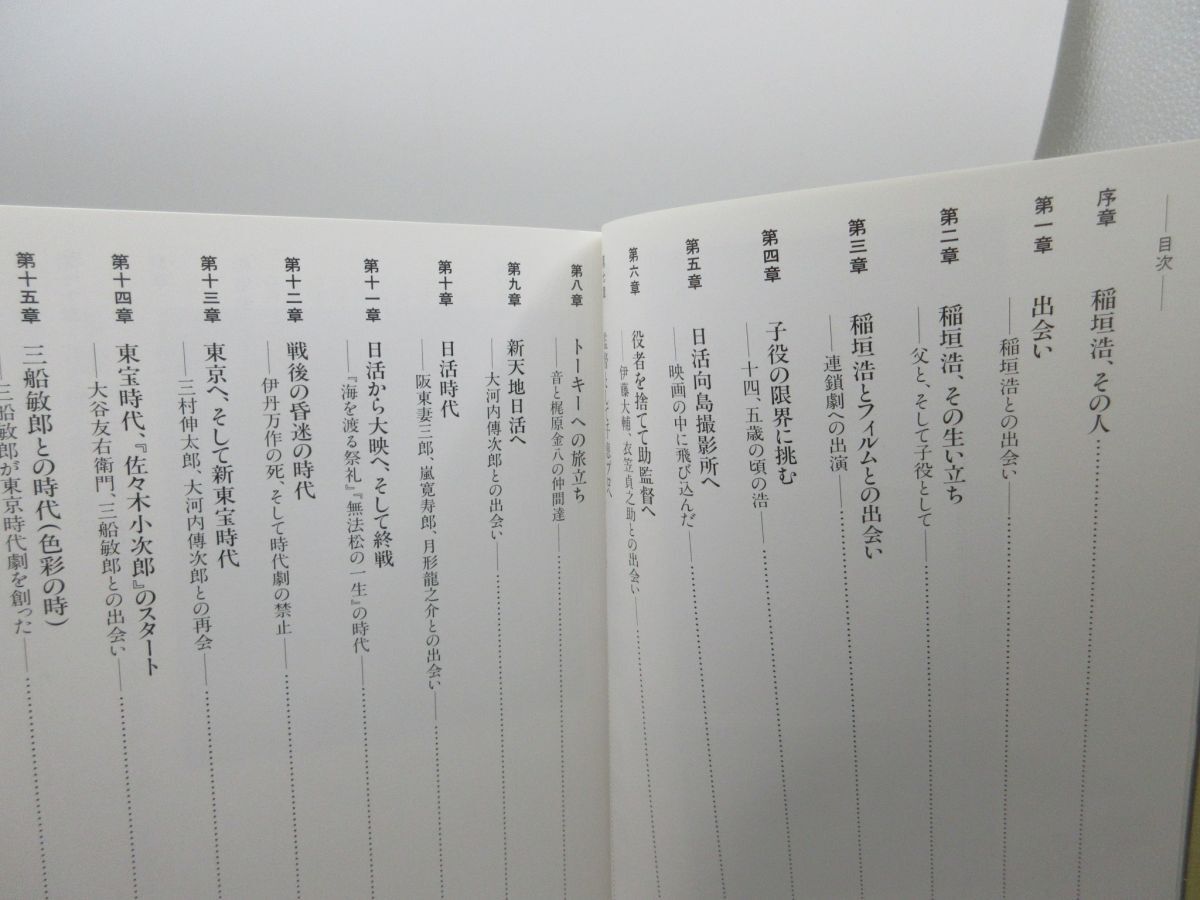 ――目次――
序章　稲垣浩、その人
第一章　出会い
――稲垣浩との出会い――
第二章　稲垣浩、その生い立ち
――父と、そして子役として――
第三章　稲垣浩とフィルムとの出会い
――連鎖劇への出演――
第四章　子役の限界に挑む
――十四、五歳の頃の浩――
第五章　日活向島撮影所へ
――映画の中に飛び込んだ――
第六章　役者を捨てて助監督へ
――伊藤大輔、衣笠貞之助との出会い――
第八章　トーキーへの旅立ち
――音と梶原金八の仲間達――
第九章　新天地日活へ
――大河内傳次郎との出会い――
第十章　日活時代
――阪東妻三郎、嵐寛寿郎、月形龍之介との出会い――
第十一章　日活から大映へ、そして終戦
――『海を渡る祭礼』『無法松の一生』の時代――
第十二章　戦後の昏迷の時代
――伊丹万作の死、そして時代劇の禁止――
第十三章　東京へ、そして新東宝時代
――三村伸太郎、大河内傳次郎との再会――
第十四章　東宝時代、『佐々木小次郎』のスタート
――大谷友右衛門、三船敏郎との出会い――
第十五章　三船敏郎との時代（色彩の時）
――三船敏郎が東京時代劇を創った――